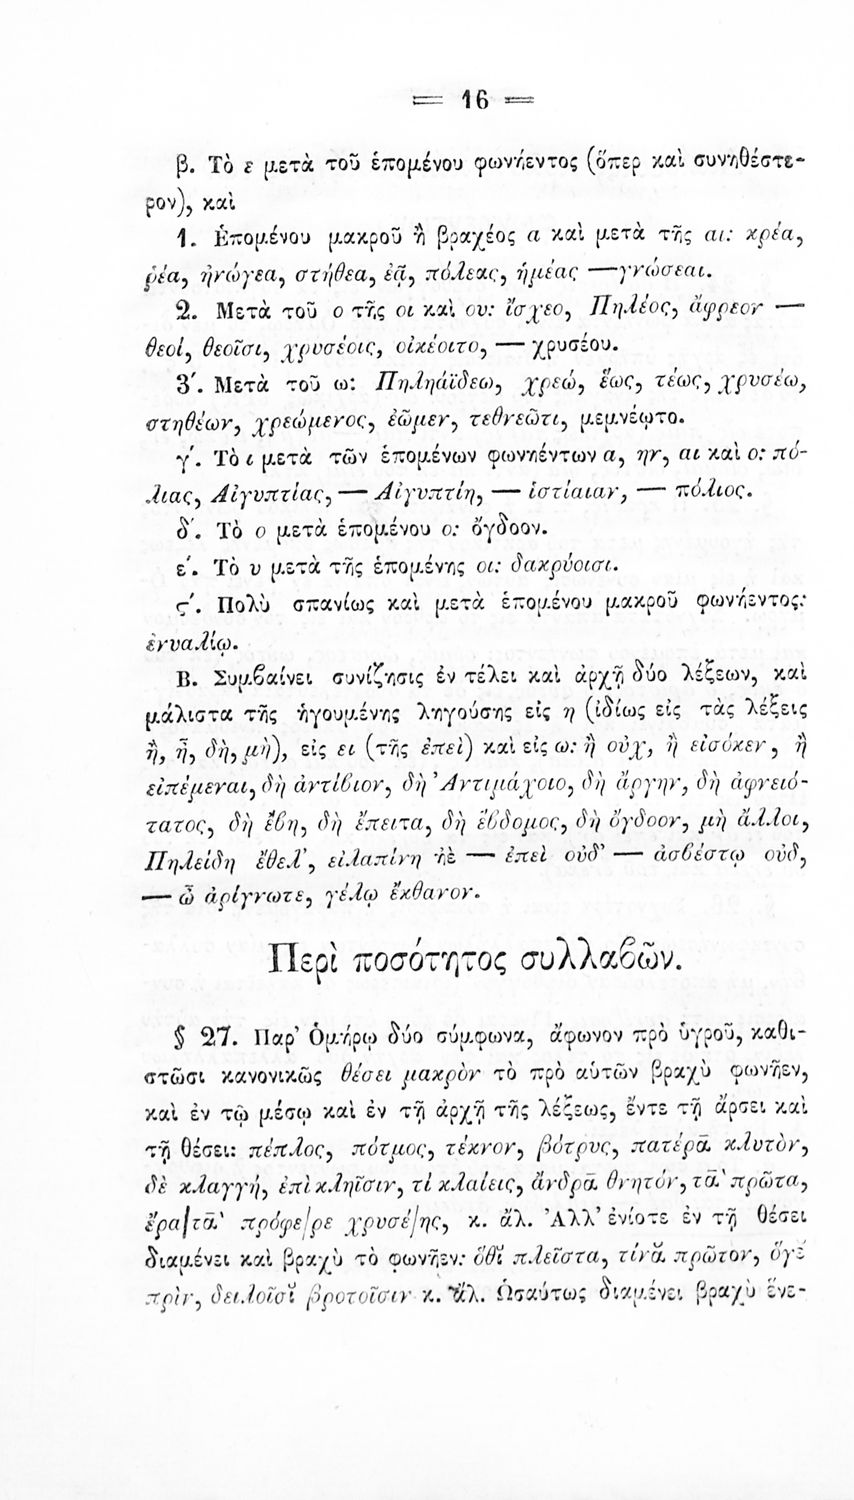 = 16 =
β. Τὸ ε μετὰ τοῦ ἑπομένου φωνήεντος (ὅπερ καὶ συνηθέστε-
ρον), καὶ
1. Ἑπομένου μακροῦ ἢ βραχέος α καὶ μετὰ τῆς αι: κρέα,
ῥέα, ἠνώγεα, στήθεα, ἐᾷ, πόλεας, ἡμέας —γνώσεαι.
2. Μετὰ τοῦ ο τῆς οι καὶ ου: ἴσχεο, Πηλέος, ἄφρεον —
θεοί, θεοῖσι, χρυσέοις, οἰκέοιτο, — χρυσέου.
3΄. Μετὰ τοῦ ω: Πηληάϊδεω, χρεώ, ἕως, τέως, χρυσέω,
στηθέων, χρεώμενος, ἐῶμεν, τεθνεῶτι, μεμνέῳτο.
γ΄. Τὸ ι μετὰ τῶν ἑπομένων φωνηέντων α, ην, αι καὶ ο: πό-
λιας, Αἰγυπτίας, — Αἰγυπτίη, — ἱστίαιαν, — πόλιος.
δ΄. Τὸ ο μετὰ ἑπομένου ο: ὄγδοον.
ε΄. Τὸ υ μετὰ τῆς ἑπομένης οι: δακρύοισι.
ϛ΄. Πολὺ σπανίως καὶ μετὰ ἑπομένου μακροῦ φωνήεντος:
ἐνυαλίῳ.
Β. Συμβαίνει συνίζησις ἐν τέλει καὶ ἀρχῇ δύο λέξεων, καὶ
μάλιστα τῆς ἡγουμένης ληγούσης εἰς η (ἰδίως εἰς τὰς λέξεις
ἢ, ἦ, δὴ, μὴ), εἰς ει (τῆς ἐπεὶ) καὶ εἰς ω: ἢ οὐχ, ἢ εἰσόκεν, ἢ
εἰπέμεναι, δὴ ἀντίβιον, δὴ Ἀντιμάχοιο, δὴ ἄργην, δὴ ἀφνειό-
τατος, δὴ ἔβη, δὴ ἔπειτα, δὴ ἕβδομος, δὴ ὄγδοον, μὴ ἄλλοι,
Πηλείδη ἔθελ', εἰλαπίνη ἠὲ — ἐπεὶ οὐδ' — ἀσβέστῳ οὐδ,
— ὦ ἀρίγνωτε, γέλῳ ἔκθανον.
Περὶ ποσότητος συλλαβῶν.
§ 27. Παρ' Ὁμήρῳ δύο σύμφωνα, ἄφωνον πρὸ ὑγροῦ, καθι-
στῶσι κανονικῶς θέσει μακρὸν τὸ πρὸ αὐτῶν βραχὺ φωνῆεν,
καὶ ἐν τῷ μέσῳ καὶ ἐν τῇ ἀρχῇ τῆς λέξεως, ἔντε τῇ ἄρσει καὶ
τῇ θέσει: πέπλος, πότμος, τέκνον, βότρυς, πατέρᾱ κλυτὸν,
δὲ κλαγγή, ἐπὶ κληῖσιν, τί κλαίεις, ἄνδρᾱ θνητόν, τᾱ̀ πρῶτα,
ἔρα|τᾱ̀ πρόφε|ρε χρυσέ|ης, κ. ἄλ. Ἀλλ' ἐνίοτε ἐν τῇ θέσει
διαμένει καὶ βραχὺ τὸ φωνῆεν: ὅθῐ πλεῖστα, τίνᾰ πρῶτον, ὅγε̆
πρὶν, δειλοῖσῐ βροτοῖσιν κ. ἄλ. Ὡσαύτως διαμένει βραχὺ ἕνε-